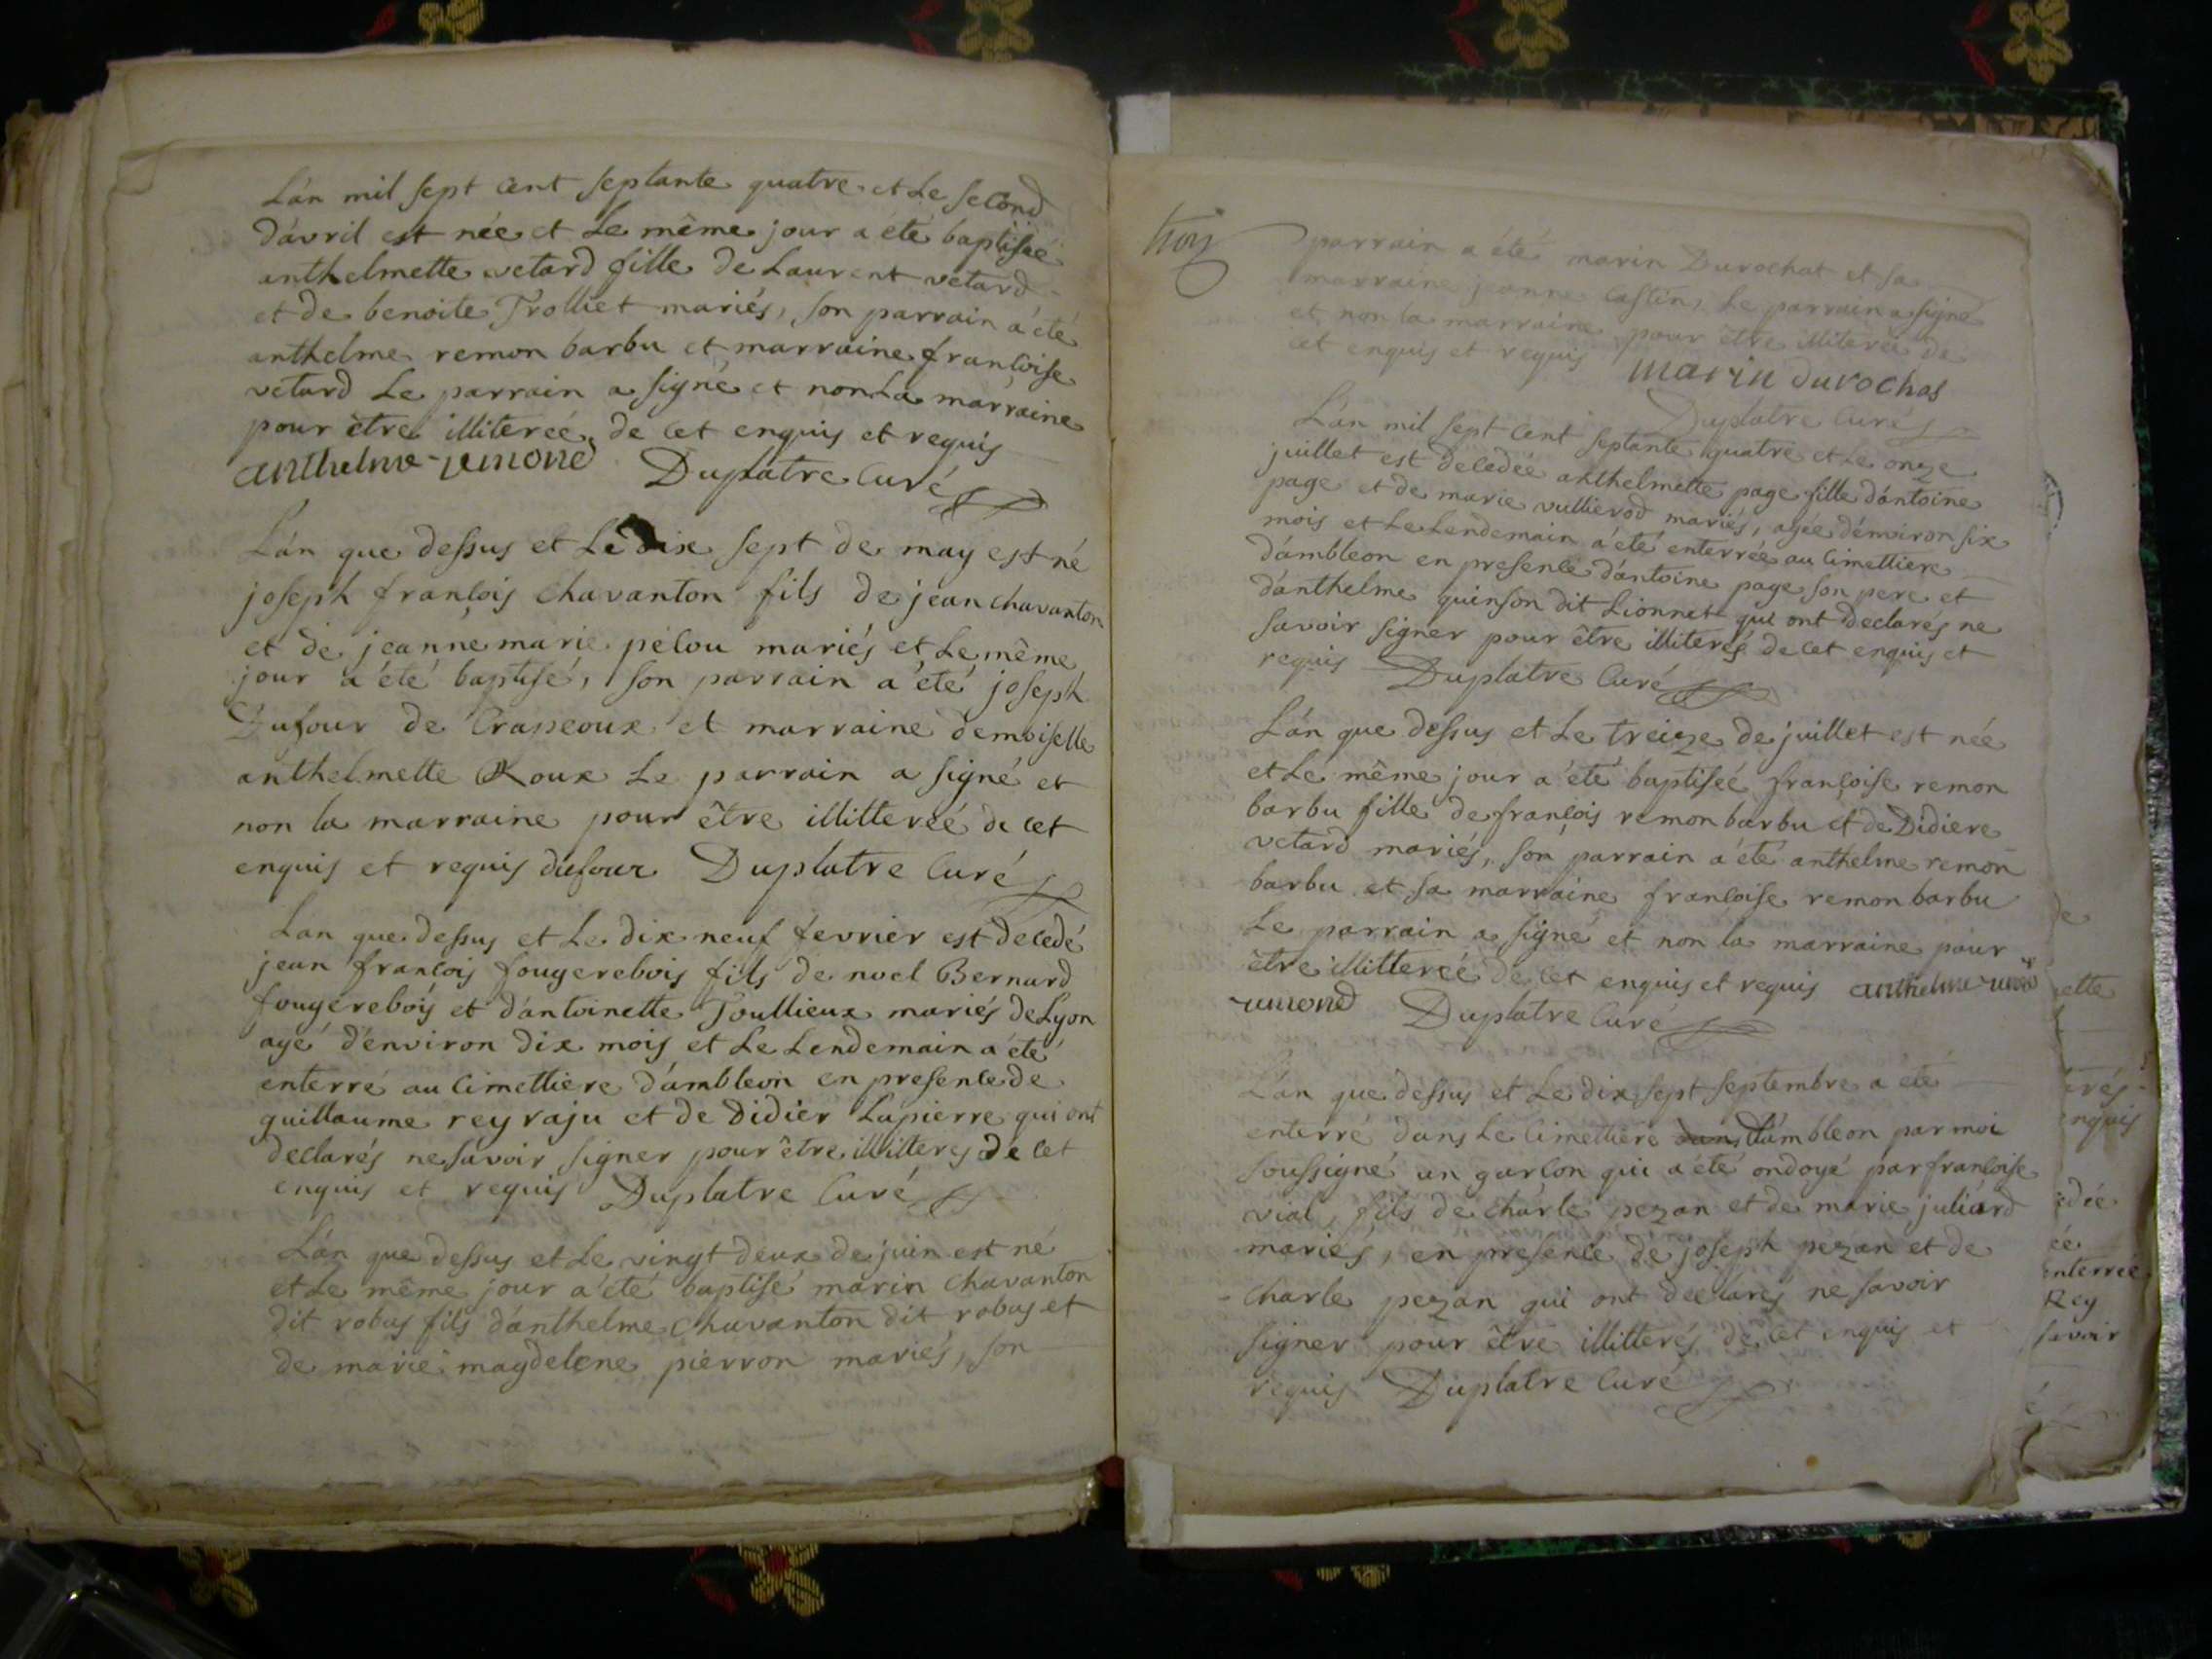 L'an mil sept cent septante quatre et Le second
d'avril est née et Le même jour a été baptisée
anthelmette vetard fille de Laurent vetard
et de benoite Trolliet mariés, son parrain a été
anthelme remon barbu et marraine françoise
vetard Le parrain a signé et non La marraine
pour être illiterée de cet enquis et requis
anthelme remond Duplatre Curé
L'an que dessus et Le dix sept de may est né
joseph françois chavanton fils de jean chavanton
et de jeanne marie pelou mariés et Le même
jour a été baptisé, son parrain a été joseph
Dufour de Crapeoux et marraine demoiselle
anthelmette Roux Le parrain a signé et
non la marraine pour être illitterée de cet
enquis et requis dufour Duplatre Curé
L'an que dessus et Le dix neuf fevrier est decedé
jean françois fougerebois fils de noel Bernard
fougerebois et d'antoinette Toullieux mariés de Lyon
agé d'environ dix mois et Le Lendemain a été
enterré au Cimettiere d'ambleon en presence de
guillaume rey raju et de Didier Lapierre qui ont
declarés ne savoir signer pour être illitterés de cet
enquis et requis Duplatre Curé
L'an que dessus et Le vingt deux de juin est né
et Le même jour a été baptisé marin chavanton
dit robas fils d'anthelme chavanton dit robas et
de marie magdelene pierron mariés, son
trois
parrain a été marin Durochat et sa
marraine jeanne Castin, Le parrain a signé
et non la marraine pour être illiterée de
cet enquis et requis marin durochas
Duplatre Curé
L'an mil sept cent septante quatre et Le onze
juillet est decedée anthelmette page fille d'antoine
page et de marie vullierod mariés, agée d'environ six
mois et Le Lendemain a été enterrée au Cimettiere
d'ambleon en presence d'antoine page son pere et
d'anthelme quinson dit Lionnet qui ont declarés ne
savoir signer pour être illiterés de cet enquis et
requis Duplatre Curé
L'an que dessus et Le treize de juillet est née
et Le même jour a été baptiseé françoise remon
barbu fille de françois remon barbu et de Didiere
vetard mariés, son parrain a été anthelme remon
barbu et sa marraine françoise remon barbu
Le parrain a signé et non la marraine pour
être illitterée de cet enquis et requis anthelme
remond Duplatre Curé
L'an que dessus et Le dix sept septembre a été
enterré dans Le Cimettiere dans d'ambleon par moi
soussigné un garçon qui a été ondoyé par françoise
vial, fils de charle pezan et de marie juliard
mariés, en presence de joseph pezan et de
charle pezan qui ont declarés ne savoir
signer pour être illitterés de cet enquis et
requis Duplatre Curé
de
ette
enquis
edée
ée
enterrée
Rey
savoir